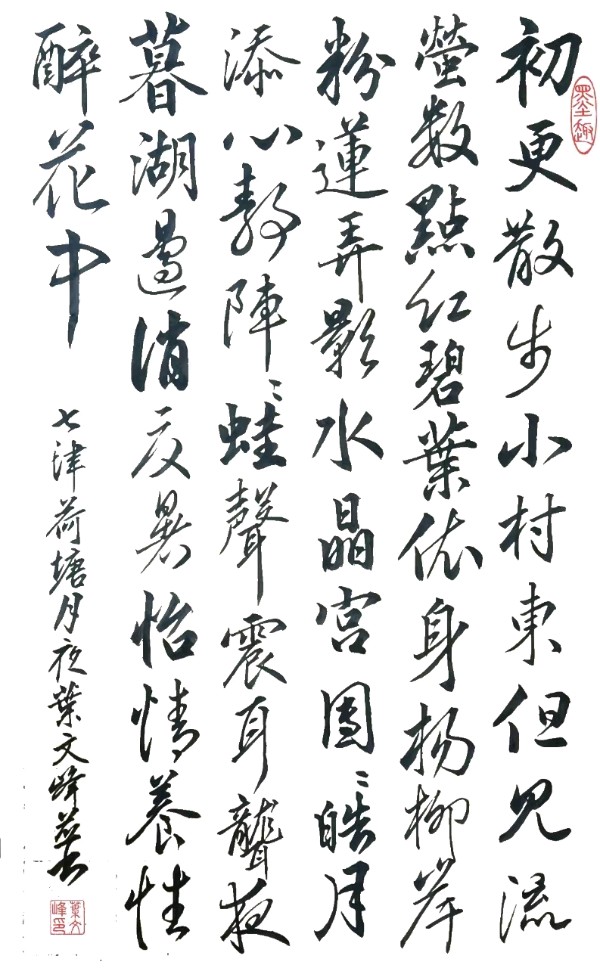 墨趣
初更散步小村東但見流
螢數點紅碧葉依身楊柳岸
粉蓮弄影水晶宮團〻皓月
添心靜陣〻蛙聲震耳聾夜
暮湖邊消夏暑怡情養性
醉花中
七律荷塘月夜葉文峰
葉文峰印